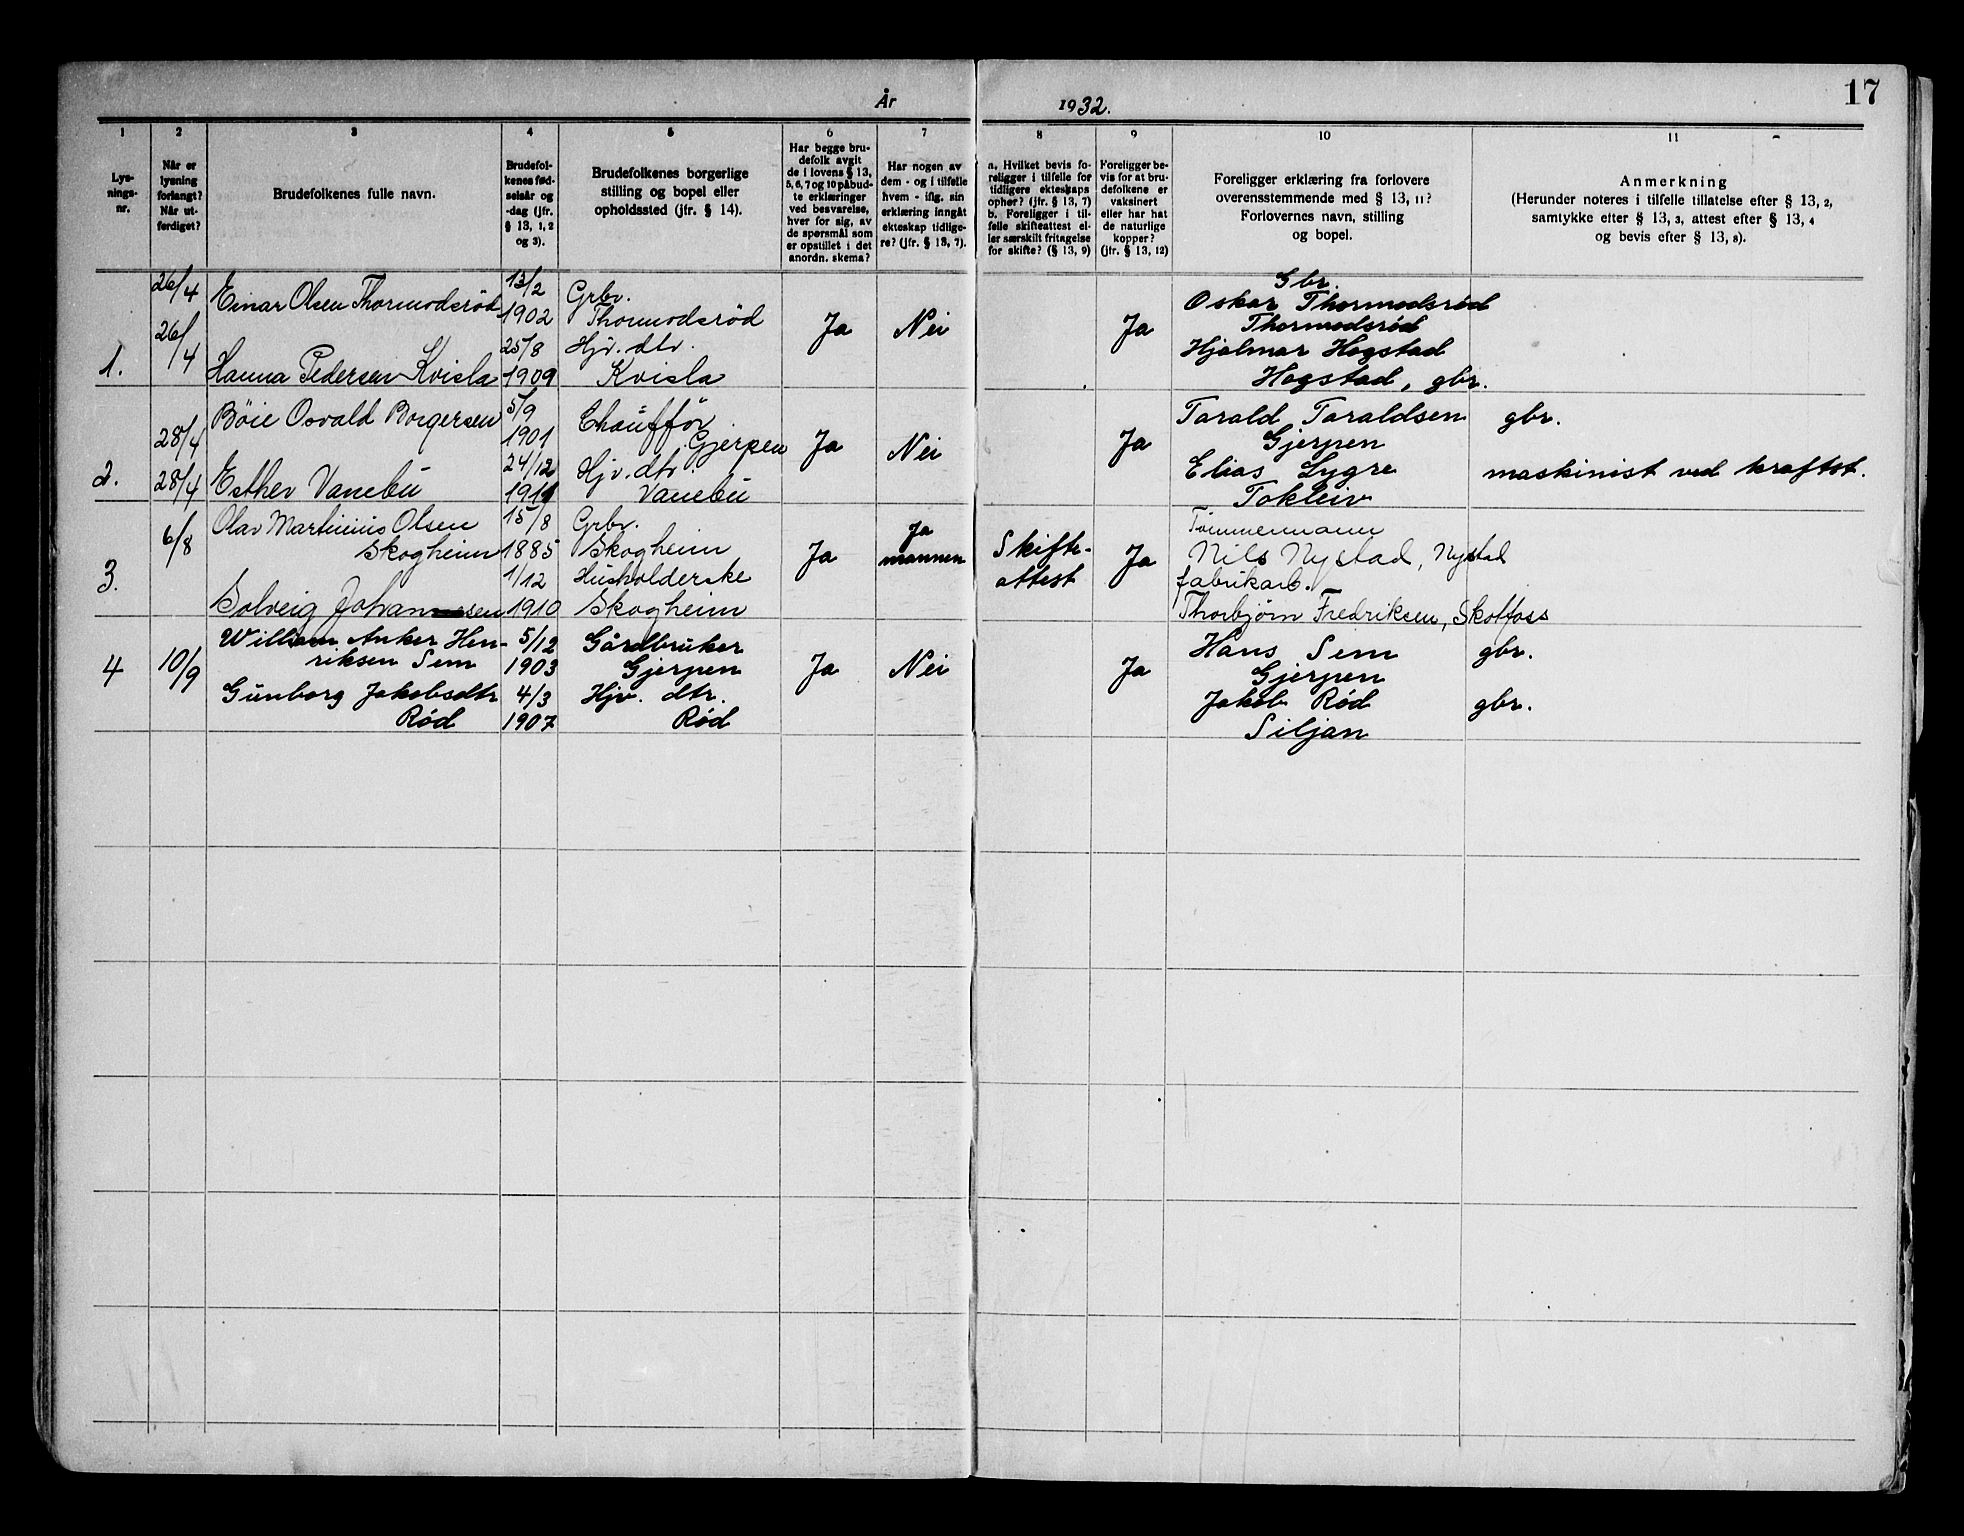 17
År 1932.
1
2
3
4
5
6
7
8
9
10
11
Lys-
nings-
nr.
Når er
lysning
forlangt?
Når ut-
ferdiget?
Brudefolkenes fulle navn.
Brudefol-
kenes fød-
selsår og
-dag (jfr.
§ 13, 1, 2
og 3).
Brudefolkenes borgerlige
stilling og bopel eller
opholdssted (jfr. § 14).
Har begge bru-
defolk avgit
de i lovens § 13,
5, 6, 7 og 10 påbud-
te erklæringer
ved besvarelse,
hver for sig, av
de spørsmål som
er opstillet i det
anordn. skema?
Har nogen av
dem - og i tilfelle
hvem - iflg. sin
erklæring inngåt
ekteskap tidlige-
re? (jfr. § 13, 7).
a. Hvilket bevis fo-
religger i tilfelle for
tidligere ekteskaps
ophør? (jfr. § 13, 7)
b. Foreligger i til-
felle skifteattest el-
ler særskilt fritagelse
for skifte? (§ 13, 9)
Foreligger be-
vis for at bru-
defolkene er
vaksinert
eller har hat
de naturlige
kopper?
(jfr. § 13, 12)
Foreligger erklæring fra forlovere
overensstemmende med § 13, 11?
Forlovernes navn, stilling
og bopel.
Anmerkning
(Herunder noteres i tilfelle tillatelse efter § 13, 2,
samtykke efter § 13, 3, attest efter § 13, 4
og bevis efter § 13, 8).
1.
26/4
26/4
Einar Olsen Thormodsrød
Hanna Pedersen Kvisla
13/2
1902
25/8
1909
Grbr.
Thormodsrød
Hjv. dtr.
Kvisla
Ja
Nei
Ja
Gbr.
Oskar Thormodsrød
Thormodsrød
Hjalmar Hogstad
Hogstad, gbr.
2.
28/4
28/4
Bøie Osvald Borgersen
Esther Vanebu
5/9
1901
24/12
1911
Chauffør
Gjerpen
Hjv. dtr.
Vanebu
Ja
Nei
Ja
Tarald Taraldsen gbr.
Gjerpen
Elias Lygre maskinist ved kraftst.
Tokleiv
3.
6/8
Olav Martinius Olsen
Skogheim
Solveig Johannesen
15/8
1885
1/12
1910
Grbr.
Skogheim
Husholderske
Skogheim
Ja
Ja
mannen
Skifte-
attest
Ja
Tømmermann
Nils Nystad, Nystad
fabrikarb.
Thorbjørn Fredriksen, Skotfoss
4
10/9
William Anker Hen-
riksen Sem
Gunborg Jakobsdtr
Rød
5/12
1903
4/3
1907
Gårdbruker
Gjerpen
Hjv. dtr.
Rød
Ja
Nei
Ja
Hans Sem gbr.
Gjerpen
Jakob Rød gbr.
Siljan